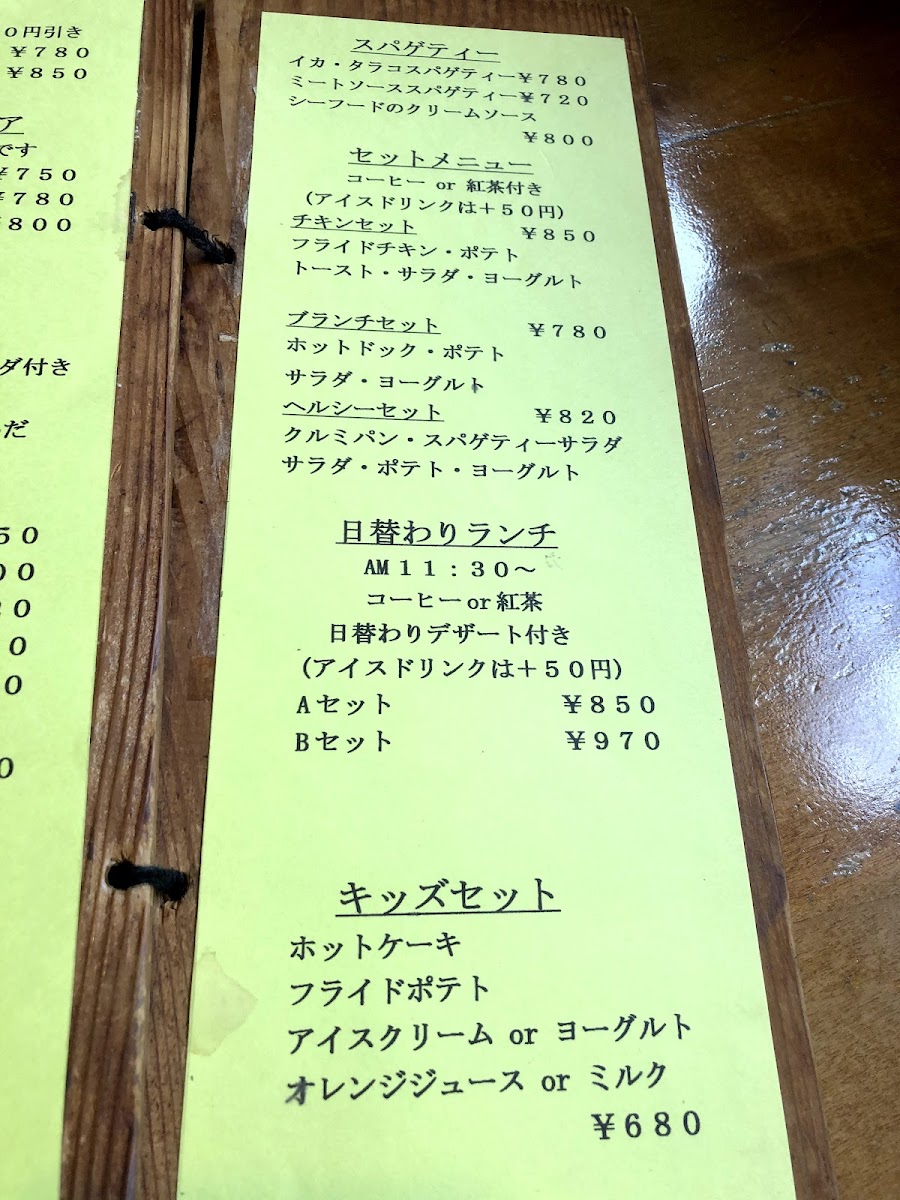 ０円引き
￥７８０
￥８５０
ア
です
￥７５０
￥７８０
￥８００
ダ付き
だ
５０
００
０
０
０
０
スパゲティー
イカ・タラコスパゲティー￥７８０
ミートソーススパゲティー￥７２０
シーフードのクリームソース
￥８００
セットメニュー
コーヒー or 紅茶付き
（アイスドリンクは＋５０円）
チキンセット ￥８５０
フライドチキン・ポテト
トースト・サラダ・ヨーグルト
ブランチセット ￥７８０
ホットドック・ポテト
サラダ・ヨーグルト
ヘルシーセット ￥８２０
クルミパン・スパゲティーサラダ
サラダ・ポテト・ヨーグルト
日替わりランチ
AM１１：３０～
コーヒーor紅茶
日替わりデザート付き
（アイスドリンクは＋５０円）
Aセット ￥８５０
Bセット ￥９７０
キッズセット
ホットケーキ
フライドポテト
アイスクリーム or ヨーグルト
オレンジジュース or ミルク
￥６８０